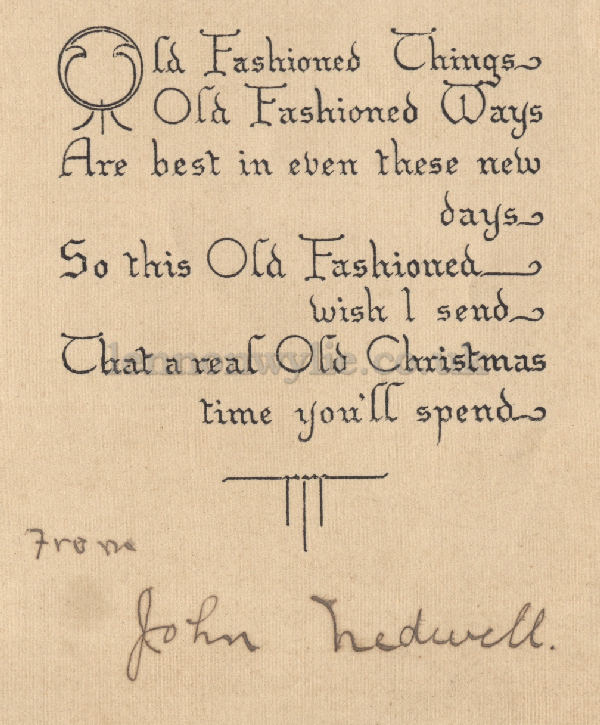 Old Fashioned Things
Old Fashioned Ways
Are best in even these new
days
So this Old Fashioned
wish I send
That a real Old Christmas
time you'll spend
From
John Nedwell.